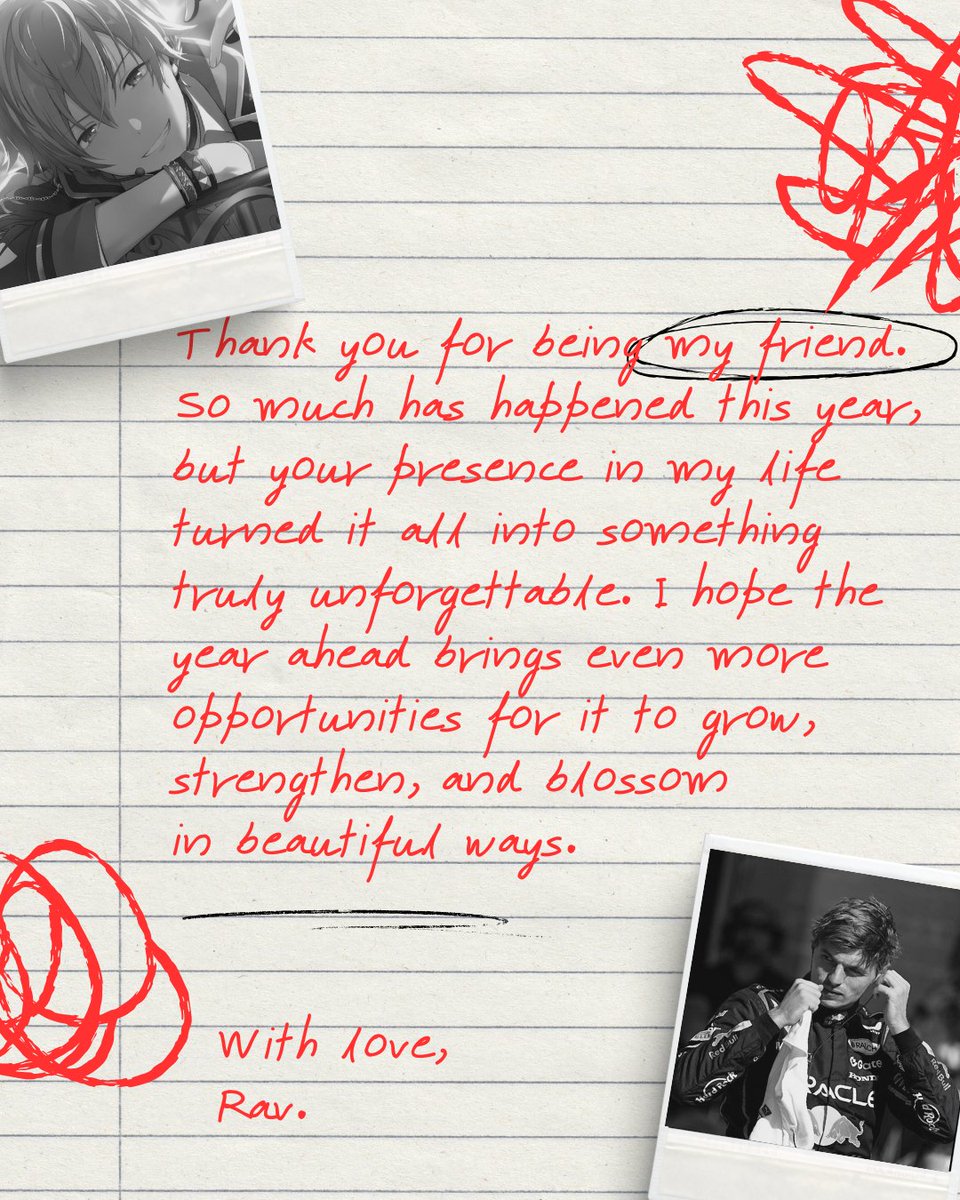 Thank you for being my friend.
So much has happened this year,
but your presence in my life
turned it all into something
truly unforgettable. I hope the
year ahead brings even more
opportunities for it to grow,
strengthen, and blossom
in beautiful ways.
With love,
Rav.
RALCH
Gate
Red Bull
HONDA
Red Bull
Hard Rock
ORACLE